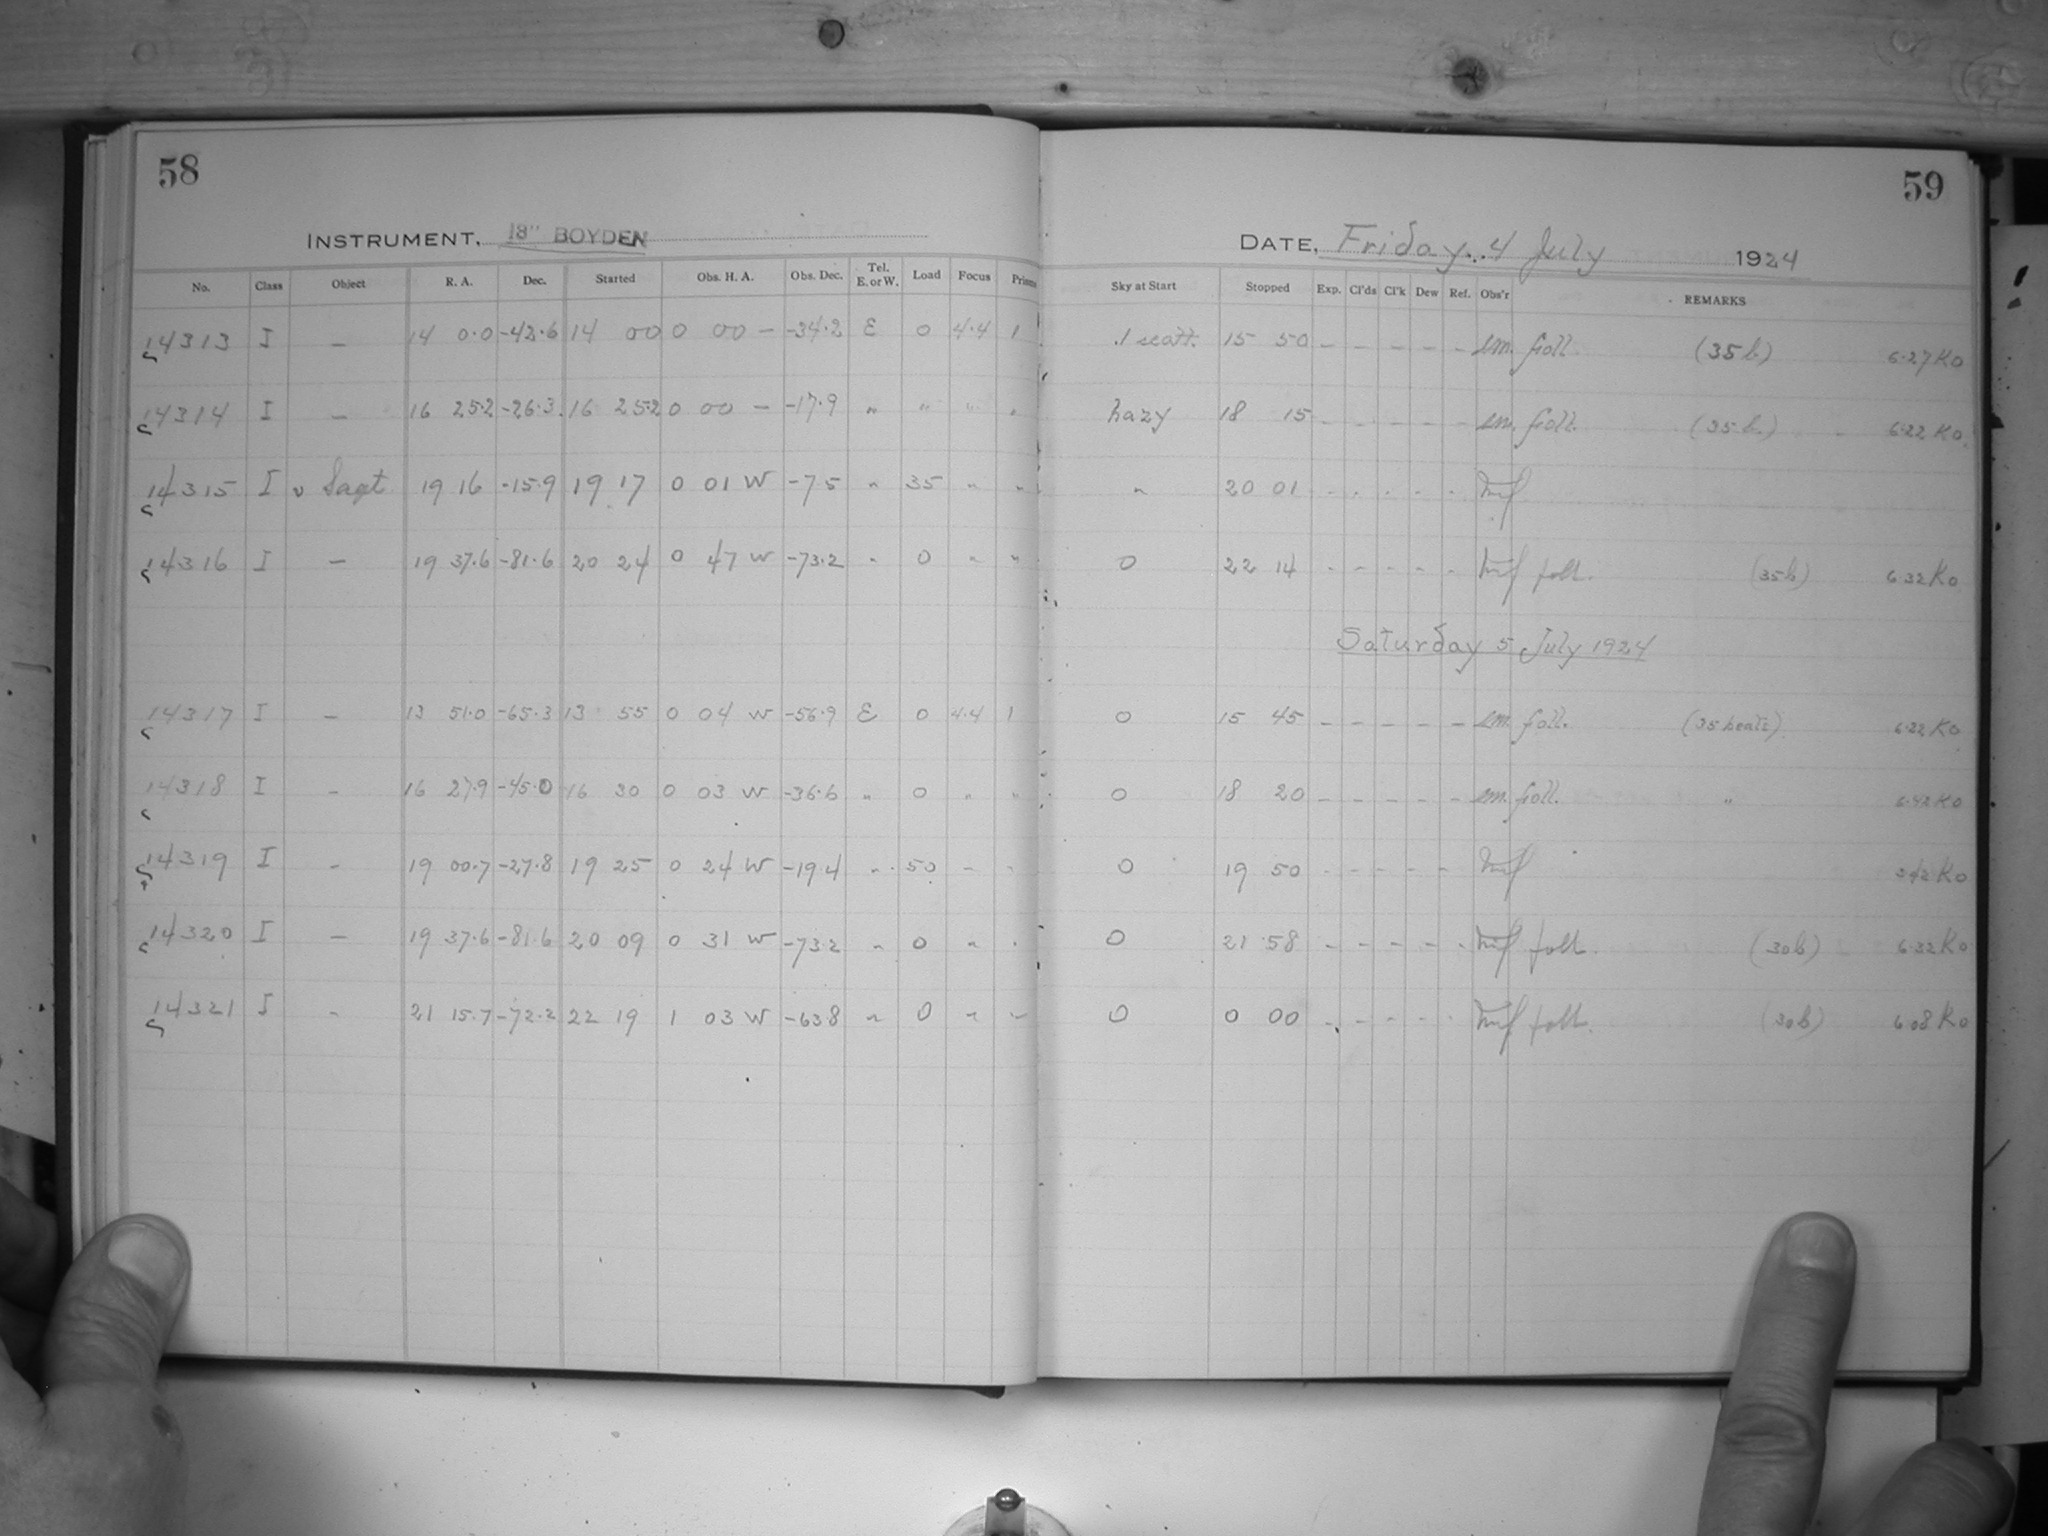 58
INSTRUMENT, 13" BOYDEN
No. Class Object R. A. Dec. Started Obs. H. A. Obs. Dec. Tel. E. or W. Load Focus Prisms
14313 I – 14 0.0 -42.6 14 00 0 00 – -34.2 E 0 4.4 1
14314 I – 16 25.2 -26.3 16 25.2 0 00 – -17.9 " " " "
14315 I υ Sagt 19 16 -15.9 19 17 0 01 W -7.5 " 35 " "
14316 I – 19 37.6 -81.6 20 24 0 47 W -73.2 " 0 " "
14317 I – 13 51.0 -65.3 13 55 0 04 W -56.9 E 0 4.4 1
14318 I – 16 27.9 -45.0 16 30 0 03 W -36.6 " 0 " "
14319 I – 19 00.7 -27.8 19 25 0 24 W -19.4 " 50 " "
14320 I – 19 37.6 -81.6 20 09 0 31 W -73.2 " 0 " "
14321 I – 21 15.7 -72.2 22 19 1 03 W -63.8 " 0 " "
59
DATE, Friday. 4 July 1924
Sky at Start Stopped Exp. Cl'ds Cl'k Dew Ref. Obs'r REMARKS
.1 scatt. 15 50 – – – – – foll. (35 b) 6.27 Ko
hazy 18 15 – – – – – foll. (35 b.) 6.22 Ko
" 20 01 – – – – –
0 22 14 – – – – – foll. (35b) 6.32 Ko
Saturday 5 July 1924
0 15 45 – – – – – foll. (35 beats) 6.22 Ko
0 18 20 – – – – – foll. " 6.42 Ko
0 19 50 – – – – – Ko
0 21 58 – – – – – foll. (30b) 6.32 Ko
0 0 00 – – – – – foll. (30b) 6.08 Ko